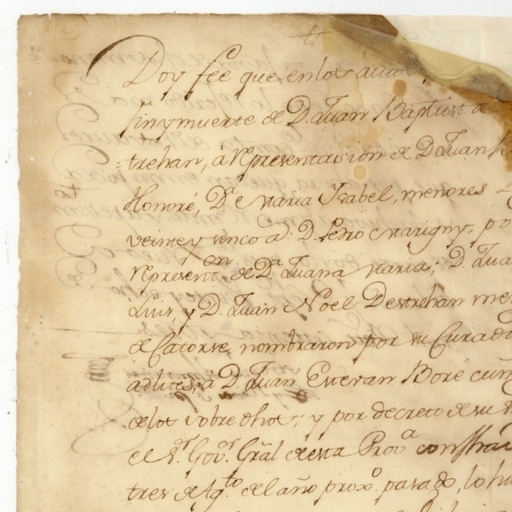 Doy feé que en los autos
fin y muerte de D.n Juan Baptista
=trehan, a representaision de D.n Juan
Honoré, D.a Maria Isabel, menores
veinte y sinco a.s D.n Pedro Marigny, po
represent.on de D.a Juana Maria; D.n Jua
Luis, y D.n Juan Noel Destrehan me
de Catorse, nombraron por su Curado
adlites, a D.n Juan Estevan Boré cuñ
de los sobre dhos; y por decreto de su
el S.r Gov.r Gral de esta Prov.a
tres de Ag.to del año prox.o pasado, lo h